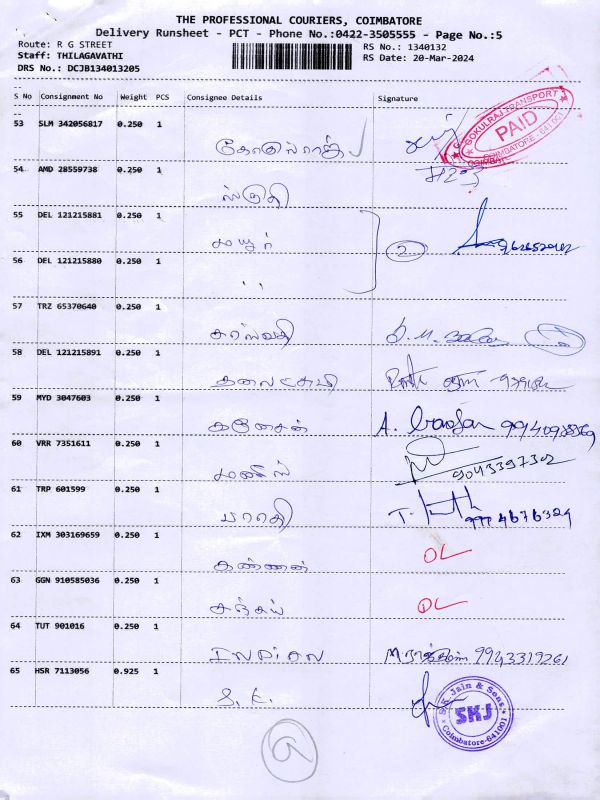 THE PROFESSIONAL COURIERS, COIMBATORE
Delivery Runsheet - PCT - Phone No.:0422-3505555 - Page No.:5
Route: R G STREET RS No.: 1340132
Staff: THILAGAVATHI RS Date: 20-Mar-2024
DRS No.: DCJB134013205
S No Consignment No Weight PCS Consignee Details Signature
53 SLM 342056817 0.250 1
கோகுல்ராஜ்
GOKULRAJ TRANSPORT
PAID
COIMBATORE - 641001
54 AMD 28559738 0.250 1
ஸ்ருதி
55 DEL 121215881 0.250 1
மயூர்
2
56 DEL 121215880 0.250 1
" "
57 TRZ 65370640 0.250 1
சரஸ்வதி
58 DEL 121215891 0.250 1
59 MYD 3047603 0.250 1
கணேசன்
A.
60 VRR 7351611 0.250 1
9043397302
61 TRP 601599 0.250 1
பாரதி
T.
62 IXM 303169659 0.250 1
கண்ணன்
OL
63 GGN 910585036 0.250 1
சஞ்சய்
OL
64 TUT 901016 0.250 1
9943319261
65 HSR 7113056 0.925 1
S.K.
S.K. Jain & Sons
SKJ
Coimbatore-641001